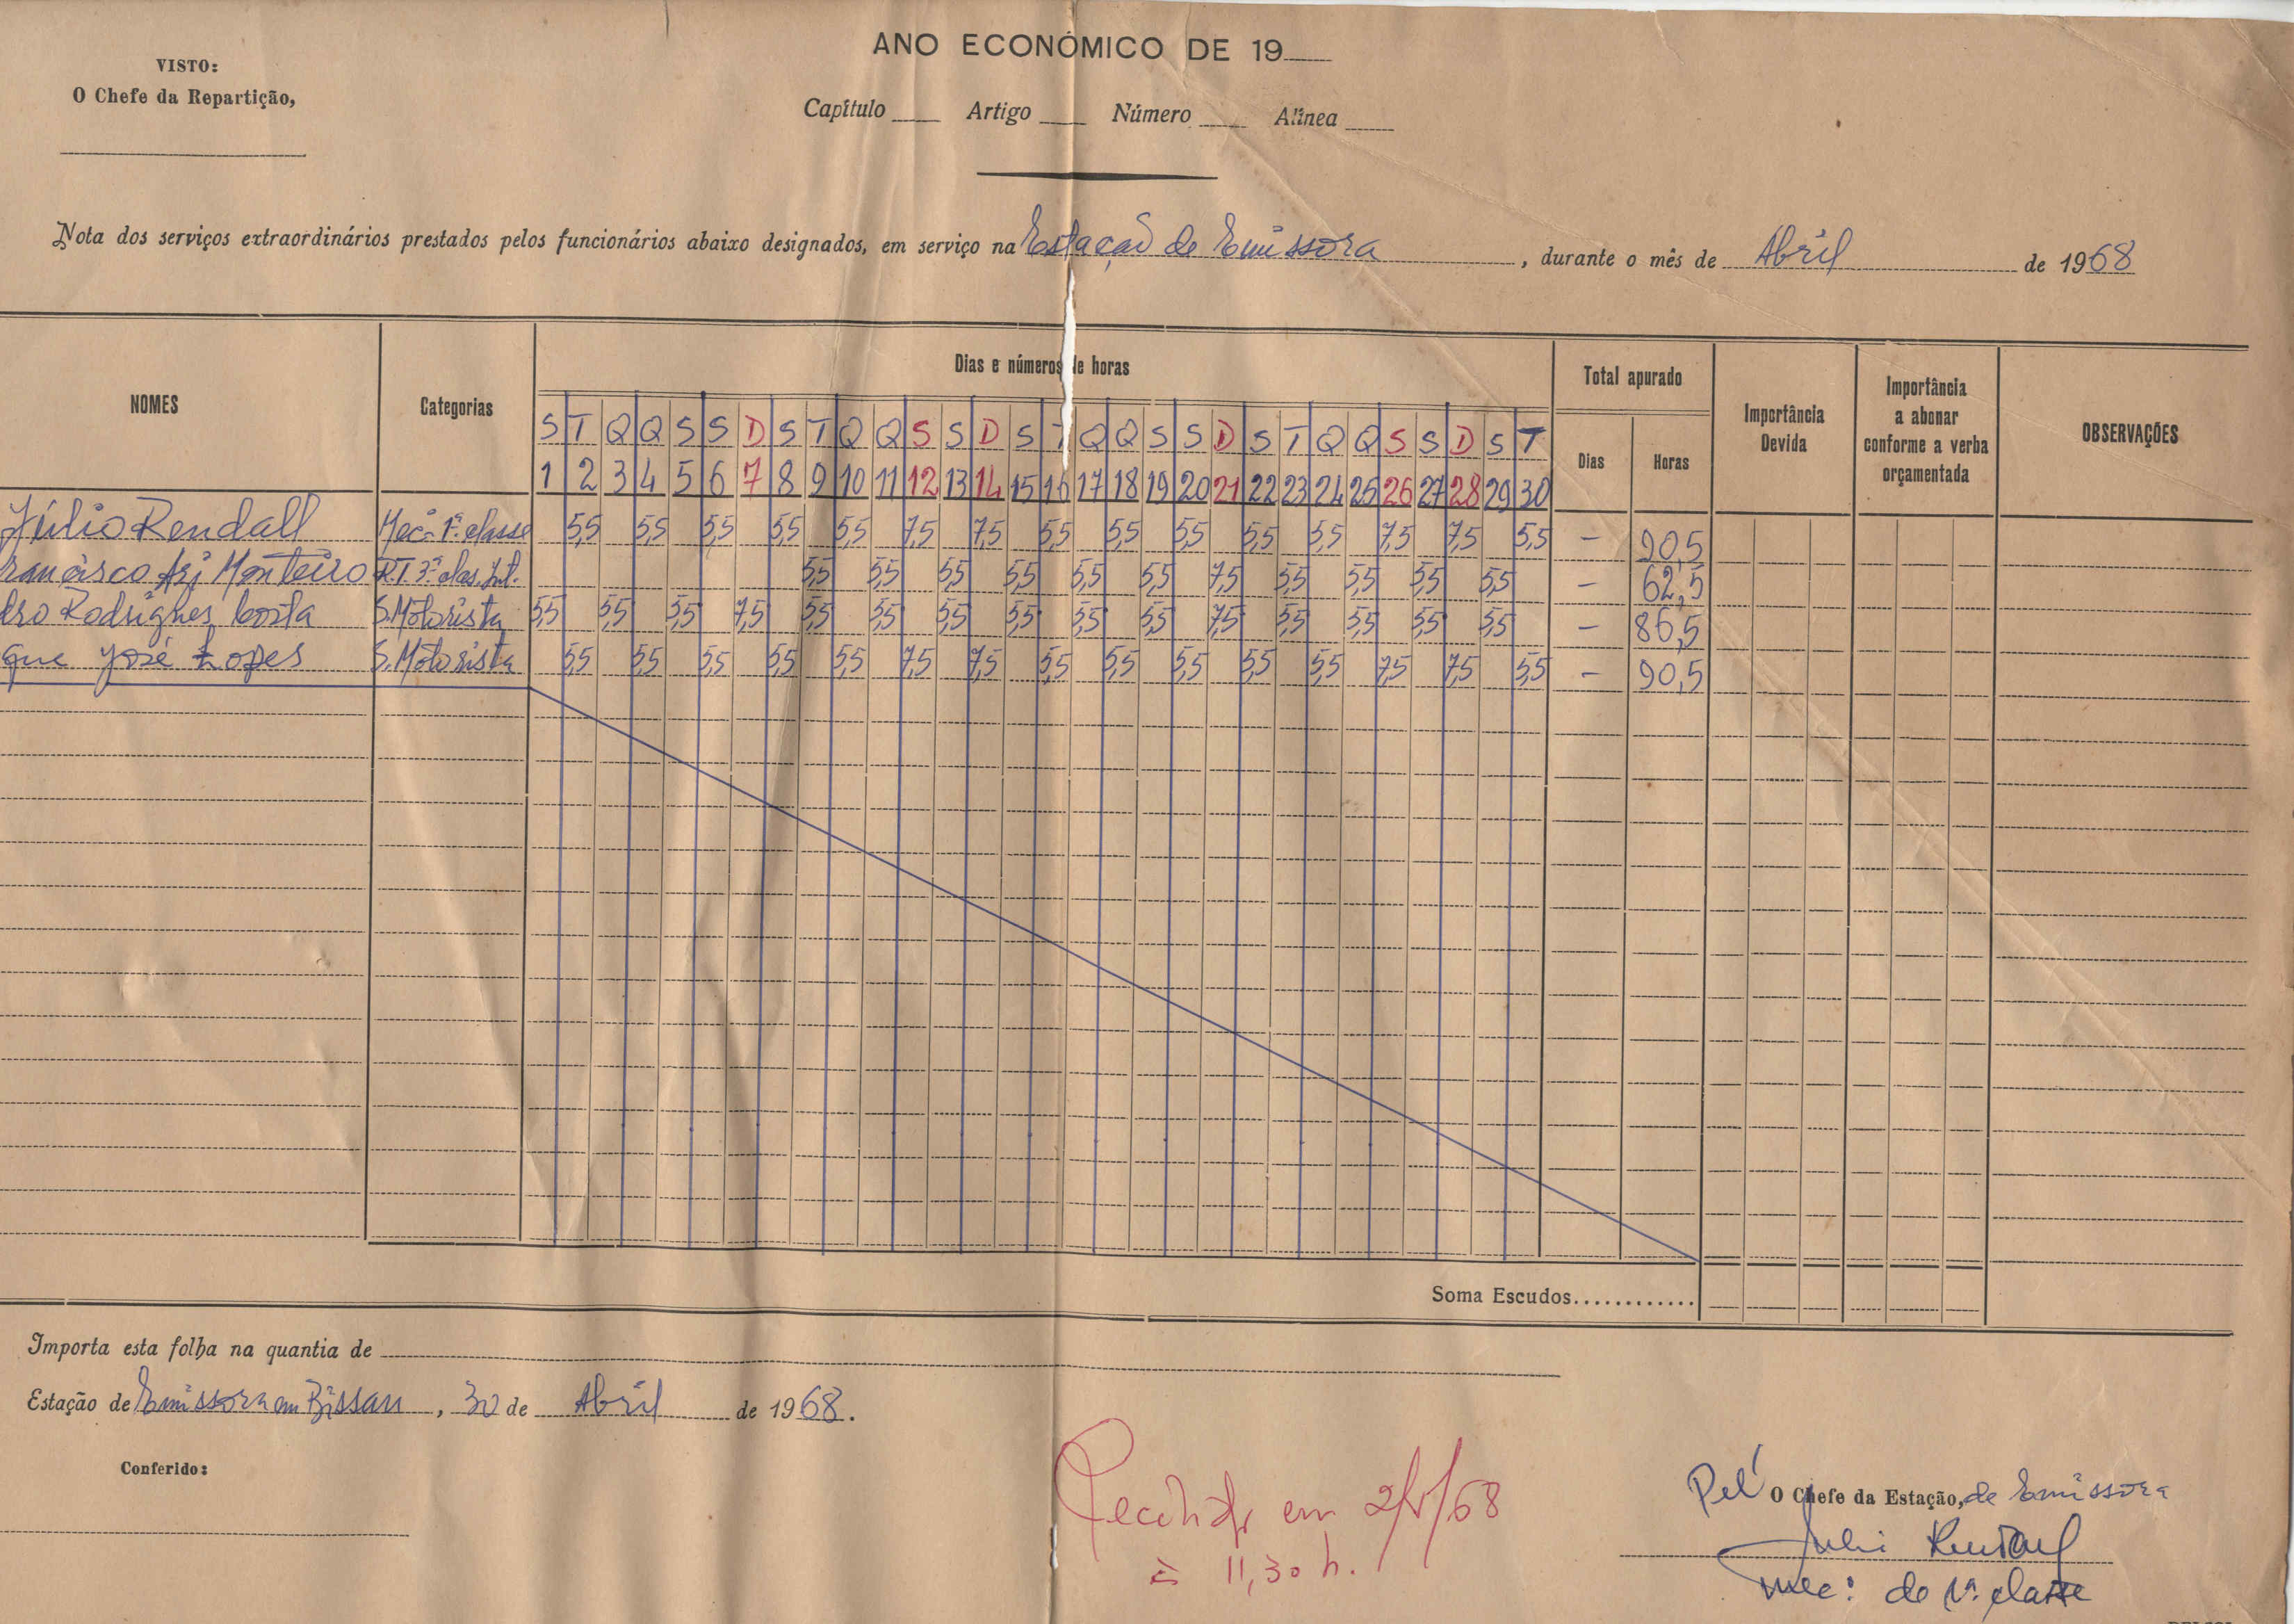 ANO ECONÓMICO DE 19
VISTO:
O Chefe da Repartição,
Capítulo Artigo Número Alínea
Nota dos serviços extraordinários prestados pelos funcionários abaixo designados, em serviço na Estação de Emissora, durante o mês de Abril de 1968
NOMES Categorias Dias e números de horas Total apurado Importância Devida Importância a abonar conforme a verba orçamentada OBSERVAÇÕES
Dias Horas
S T Q Q S S D S T Q Q S S D S T Q Q S S D S T Q Q S S D S T
1 2 3 4 5 6 7 8 9 10 11 12 13 14 15 16 17 18 19 20 21 22 23 24 25 26 27 28 29 30
Júlio Rendall Mec. 1ª classe 5,5 5,5 5,5 5,5 5,5 7,5 7,5 5,5 5,5 5,5 5,5 5,5 7,5 7,5 5,5 - 90,5
rancisco Monteiro R.T. 3ª clas. 5,5 5,5 5,5 5,5 5,5 5,5 7,5 5,5 5,5 5,5 5,5 - 62,5
dro Rodrigues Costa S. Motorista 5,5 5,5 5,5 7,5 5,5 5,5 5,5 5,5 5,5 5,5 7,5 5,5 5,5 5,5 5,5 - 86,5
que José Lopes S. Motorista 5,5 5,5 5,5 5,5 5,5 7,5 7,5 5,5 5,5 5,5 5,5 5,5 7,5 7,5 5,5 - 90,5
Soma Escudos............
Importa esta folha na quantia de
Estação de Emissora em Bissau, 30 de Abril de 1968.
Conferido:
Recebido em 2/5/68
às 11,30 h.
Pel' O Chefe da Estação, de Emissora
Julio Rendall
Mec. de 1ª classe